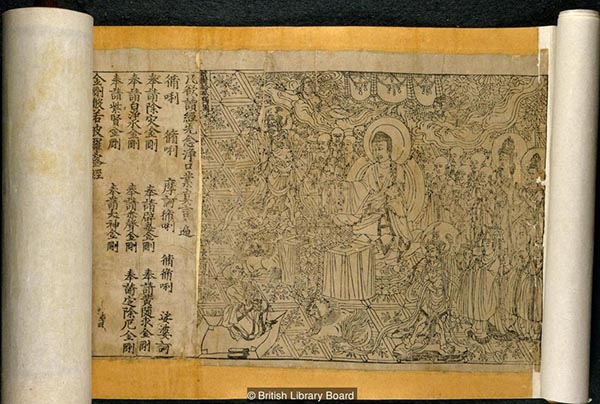 凡欲讀經先念淨口業真言一遍
脩唎 脩唎 摩訶脩唎 脩脩唎 娑婆訶
奉請除灾金剛 奉請辟毒金剛 奉請黃隨求金剛
奉請白淨水金剛 奉請赤聲金剛 奉請定除厄金剛
奉請紫賢金剛 奉請大神金剛
金剛般若波羅蜜經
© British Library Board